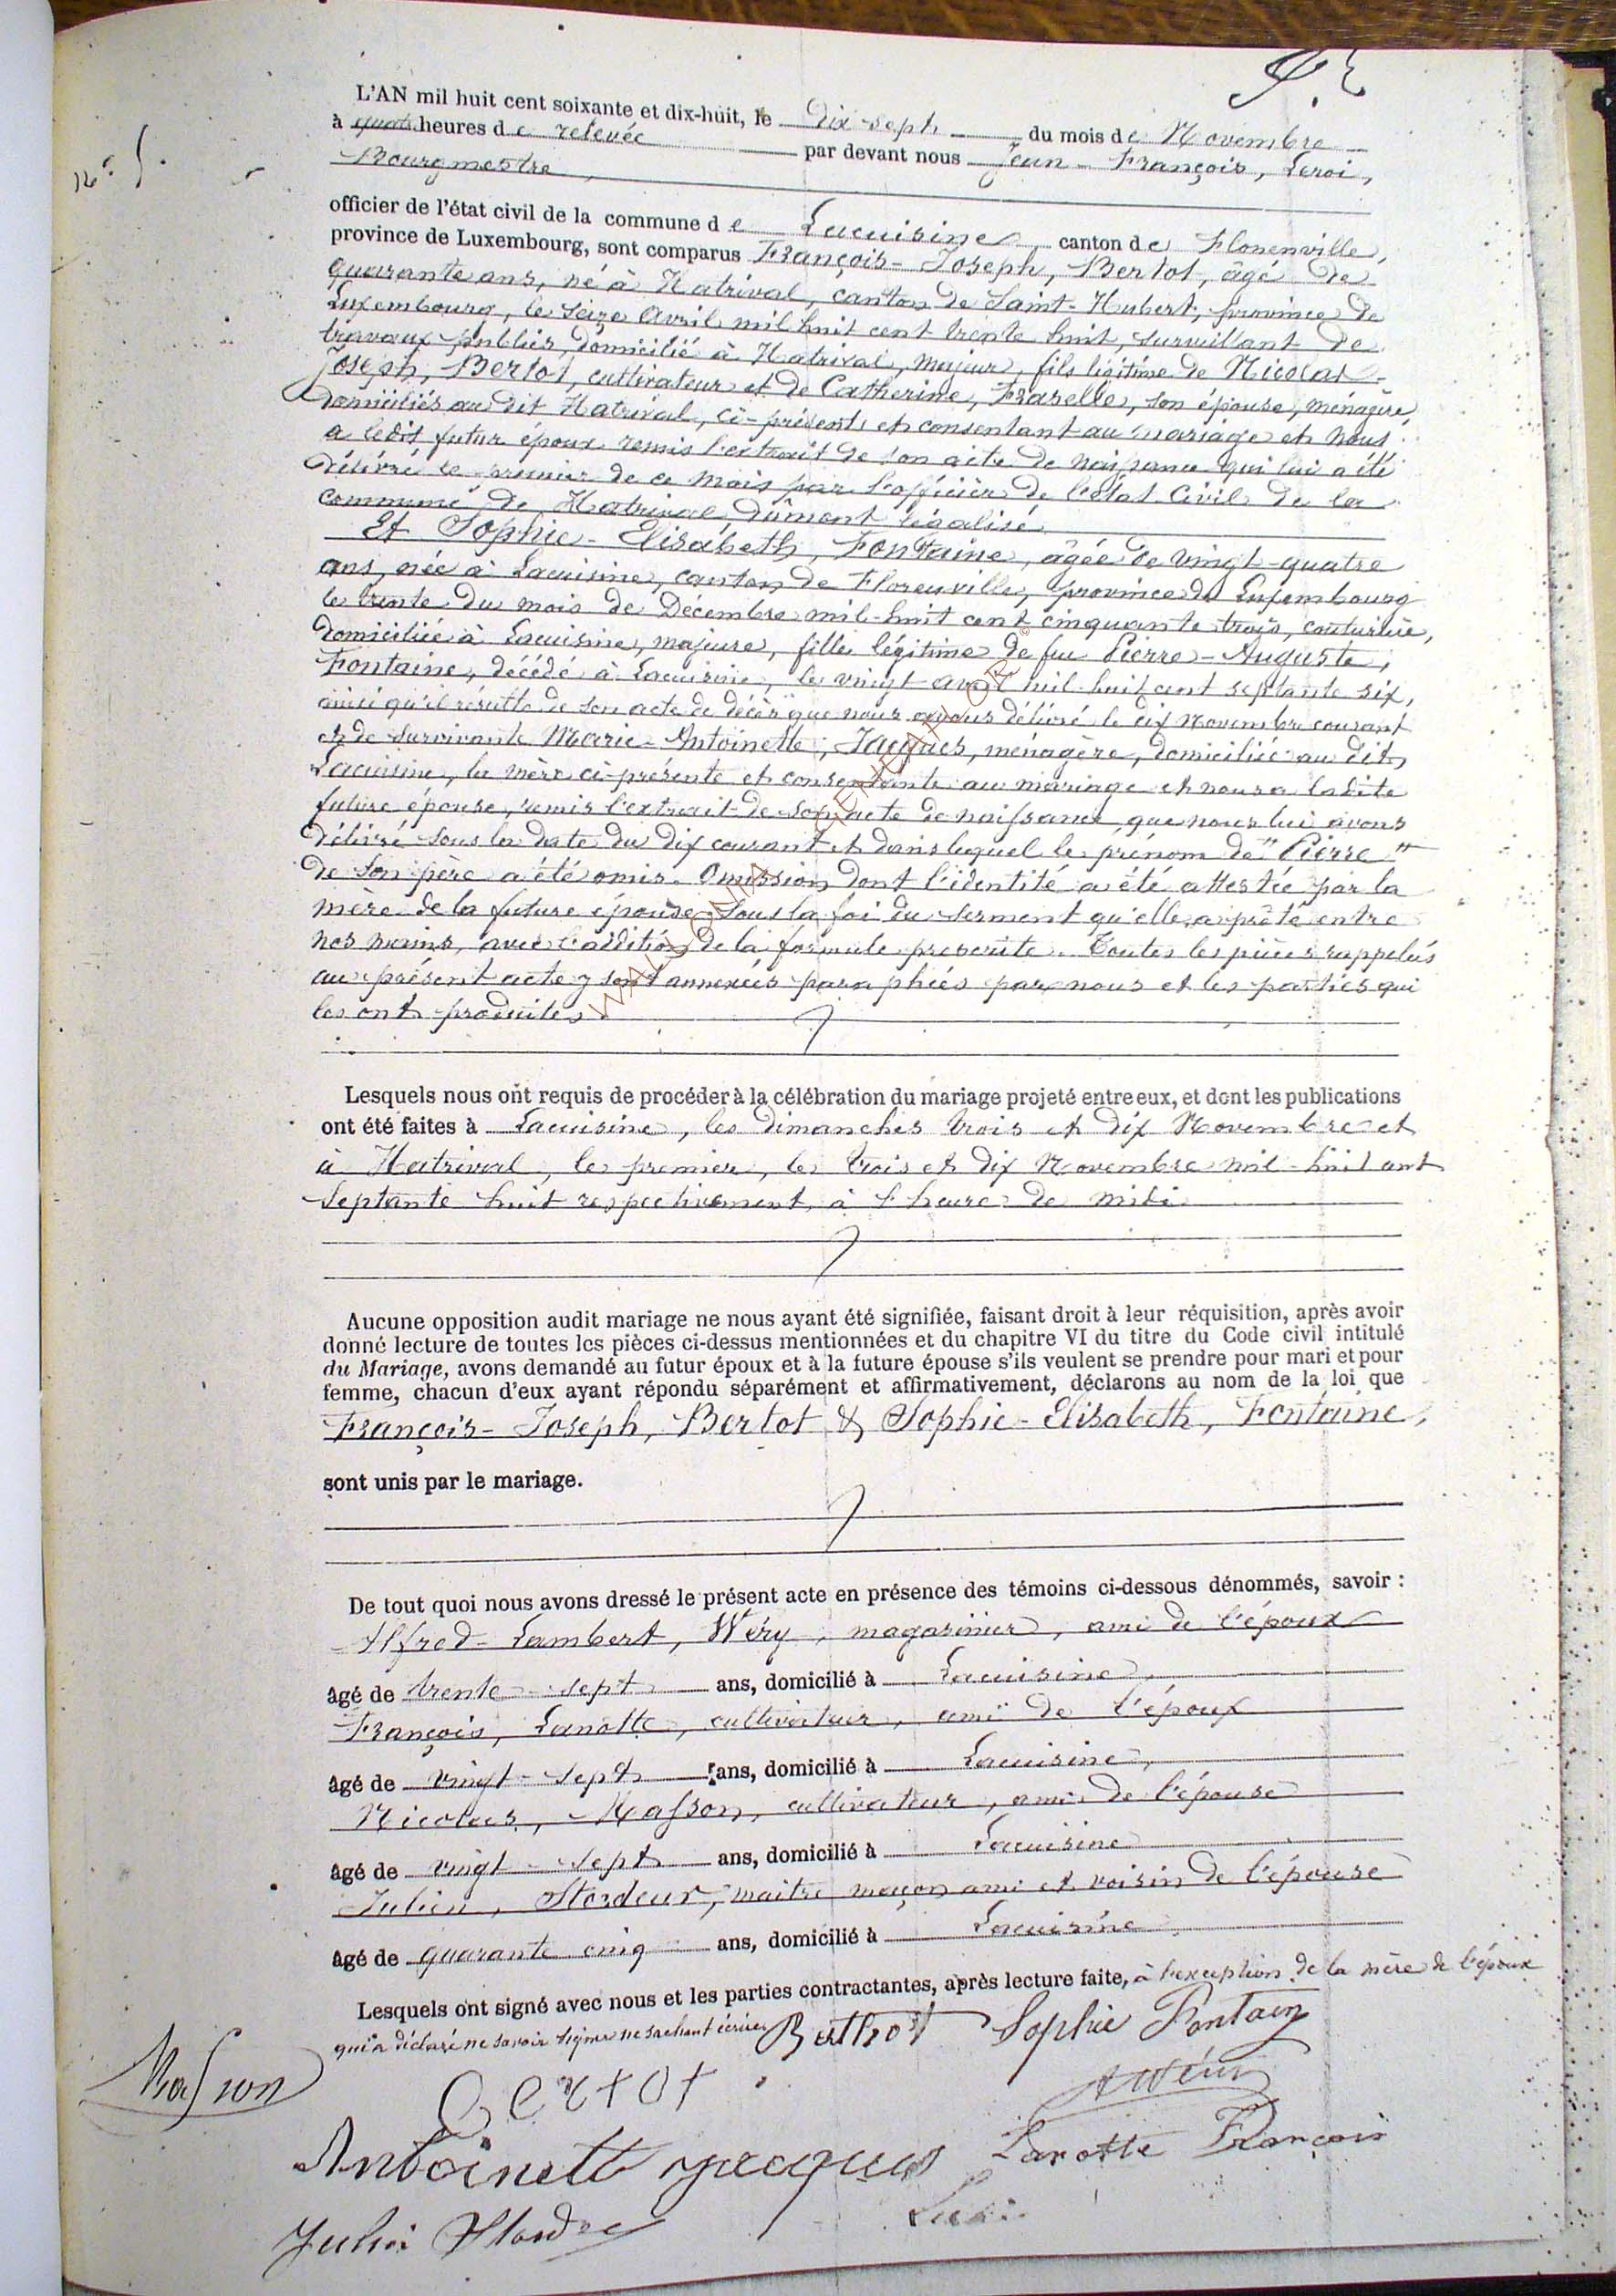 L'AN mil huit cent soixante et dix-huit, le Dix-sept du mois de Novembre
à quatre heures de relevée par devant nous Jean-François, Leroi,
Bourgmestre,
officier de l'état civil de la commune de Lacuisine, canton de Florenville,
province de Luxembourg, sont comparus François-Joseph, Bertot, âgé de
quarante ans, né à Hatrival, canton de Saint-Hubert, province de
Luxembourg, le seize Avril mil huit cent trente huit, surveillant de
travaux publics, domicilié à Hatrival, majeur, fils légitime de Nicolas-
Joseph, Bertot, cultivateur et de Catherine, Frarelle, son épouse, ménagère,
domiciliés au dit Hatrival, ci-présents et consentant au mariage et nous
a ledit futur époux remis l'extrait de son acte de naissance qui lui a été
délivré le premier de ce mois par l'officier de l'état Civil de la
commune de Hatrival, dûment légalisé
Et Sophie-Elisabeth, Fontaine, âgée de vingt-quatre
ans, née à Lacuisine, canton de Florenville, province de Luxembourg
le trente du mois de Décembre mil-huit cent cinquante trois, couturière,
domiciliée à Lacuisine, majeure, fille légitime de feu Pierre-Auguste,
Fontaine, décédé à Lacuisine, le vingt avril mil-huit cent septante six,
ainsi qu'il résulte de son acte de décès que nous avons délivré le dix Novembre courant
et de survivante Marie-Antoinette, Jacques, ménagère, domiciliée au dit
Lacuisine, la mère ci-présente et consentante au mariage et nous a ladite
future épouse, remis l'extrait de son acte de naissance que nous lui avons
délivré sous la date du dix courant et dans lequel le prénom de "Pierre"
de son père a été omis. Omission dont l'identité a été attestée par la
mère de la future épouse sous la foi du serment qu'elle a prêté entre
nos mains, avec l'addition de la formule prescrite. Toutes les pièces rappelés
au présent acte y sont annexées paraphées par nous et les parties qui
les ont produites.
Lesquels nous ont requis de procéder à la célébration du mariage projeté entre eux, et dont les publications
ont été faites à Lacuisine, les dimanches trois et dix Novembre et
à Hatrival, le premier, le trois et dix Novembre mil-huit cent
septante huit respectivement à l'heure de midi
Aucune opposition audit mariage ne nous ayant été signifiée, faisant droit à leur réquisition, après avoir
donné lecture de toutes les pièces ci-dessus mentionnées et du chapitre VI du titre du Code civil intitulé
du Mariage, avons demandé au futur époux et à la future épouse s'ils veulent se prendre pour mari et pour
femme, chacun d'eux ayant répondu séparément et affirmativement, déclarons au nom de la loi que
François-Joseph, Bertot & Sophie-Elisabeth, Fontaine,
sont unis par le mariage.
De tout quoi nous avons dressé le présent acte en présence des témoins ci-dessous dénommés, savoir :
Alfred-Lambert, Wéry, magasinier, ami de l'époux
âgé de trente-sept ans, domicilié à Lacuisine,
François, Lanotte, cultivateur, ami de l'époux
âgé de vingt-sept ans, domicilié à Lacuisine,
Nicolas, Masson, cultivateur, ami de l'épouse
âgé de vingt-sept ans, domicilié à Lacuisine
Julien, Stordeur, maitre maçon ami et voisin de l'épouse
âgé de quarante cinq ans, domicilié à Lacuisine
Lesquels ont signé avec nous et les parties contractantes, après lecture faite, à l'exception de la mère de l'époux
qui a déclaré ne savoir signer ne sachant écrire
Berthot Sophie Fontain
Masson
Bertot AWéry
Antoinett jacques Lanotte François
Julien Stordeur Leroi